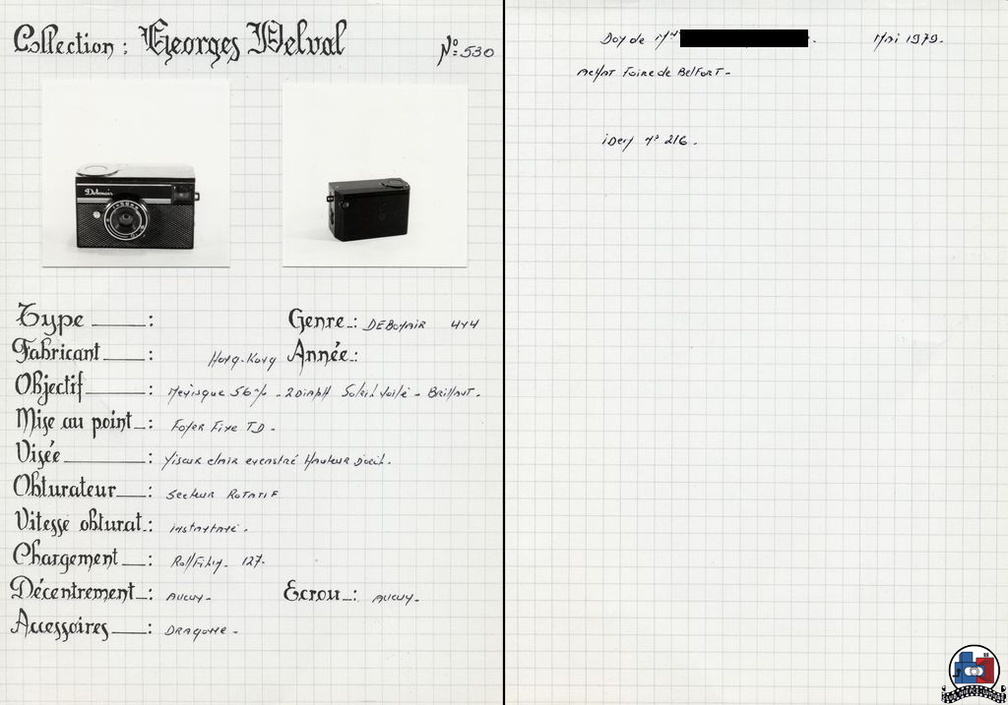 Collection : Georges Delval N°: 530
Debonair
Type : Genre : DEBONAIR 4x4
Fabricant : Hong-Kong Année :
Objectif : Ménisque 56 % - 2 Diaph Soleil Voilé - Brillant.
Mise au point : Foyer Fixe T.D -
Visée : Viseur clair excentré Hauteur D'oeil.
Obturateur : Secteur Rotatif
Vitesse obturat : instantané.
Chargement : Rollfilm - 127.
Décentrement : Aucun - Ecrou : Aucun -
Accessoires : Dragonne -
Don de Mai 1979.
Achat Foire de Belfort -
iDem n° 216.